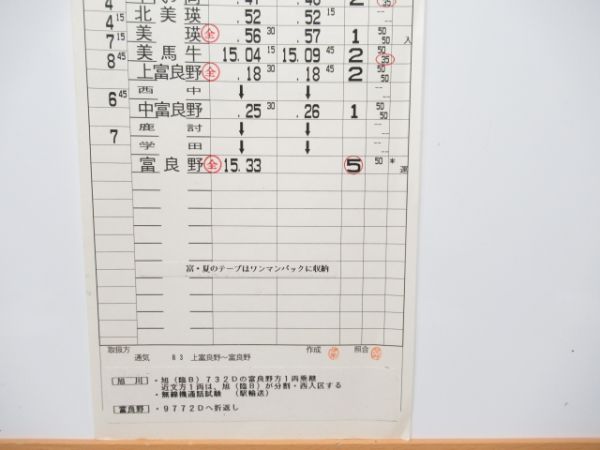 4
.47
.48
2
35
4 15 北美瑛 .52 .52 15
7 15 美瑛 全 .56 30 .57 1 50 50 入
8 45 美馬牛 15.04 15 15.09 45 2 50 35
上富良野 全 .18 30 .18 45 2 50 50
西中 ↓ ↓
6 45 中富良野 .25 30 .26 1 50 50
鹿討 ↓ ↓
7 学田 ↓ ↓
富良野 全 15.33 5 50 * 速
富・夏のテープはワンマンパックに収納
取扱方 作成 照合
通気 83 上富良野〜富良野
旭川 ・旭(臨B)732Dの富良野方1両乗継
近文方1両は、旭(臨B)が分割・西入区する
・無線機通話試験 (駅輸送)
富良野 ・9772Dへ折返し